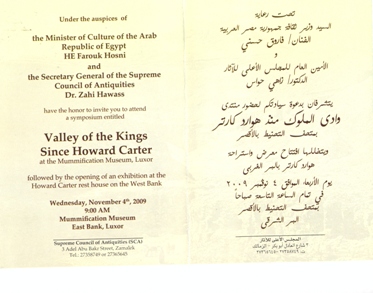 Under the auspices of
the Minister of Culture of the Arab
Republic of Egypt
HE Farouk Hosni
and
the Secretary General of the Supreme
Council of Antiquities
Dr. Zahi Hawass
have the honor to invite you to attend
a symposium entitled
Valley of the Kings
Since Howard Carter
at the Mummification Museum, Luxor
followed by the opening of an exhibition at the
Howard Carter rest house on the West Bank
Wednesday, November 4th, 2009
9:00 AM
Mummification Museum
East Bank, Luxor
Supreme Council of Antiquities (SCA)
3 Adel Abu Bakr Street, Zamalek
Tel.: 27358749 or 27365645
تحت رعاية
السيد وزير ثقافة جمهورية مصر العربية
الفنان / فاروق حسني
و
الأمين العام للمجلس الأعلى للآثار
الدكتور / زاهي حواس
يتشرفان بدعوة سيادتكم لحضور منتدى
وادى الملوك منذ هوارد كارتر
بمتحف التحنيط بالأقصر
ويتخللها إفتتاح معرض واستراحة
هوارد كارتر بالبر الغربى
يوم الأربعاء الموافق ٤ نوفمبر ٢٠٠٩
فى تمام الساعة التاسعة صباحاً
بمتحف التحنيط بالأقصر
البر الشرقى
المجلس الأعلى للآثار
٣ شارع العادل أبو بكر - الزمالك